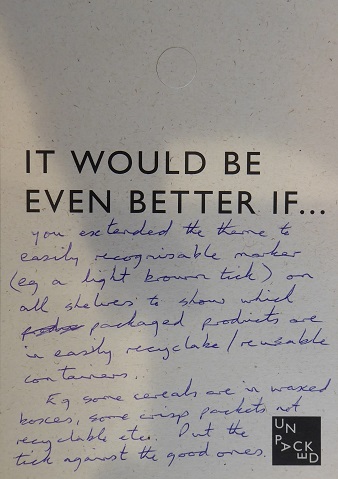 IT WOULD BE
EVEN BETTER IF...
you extended the theme to
easily recognisable marker
(eg a light brown tick) on
all shelves to show which
packaged products are
in easily recyclable / reusable
containers.
Eg some cereals are in waxed
boxes, some crisp packets not
recyclable etc. Put the
tick against the good ones.
UN
PACK
ED